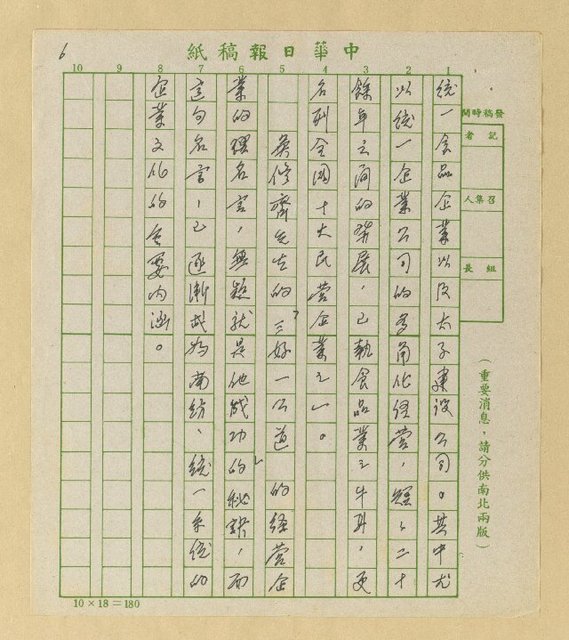 6
中華日報稿紙
10 9 8 7 6 5 4 3 2 1
發稿時間
記者
召集人
組長
(重要消息,請分供南北兩版)
統一食品企業以及太子建設公司。其中尤
以統一企業公司的多角化經營,短短二十
餘年之間的發展,已執食品業之牛耳,更
名列全國十大民營企業之一。
吳修齊先生的「三好一公道」的經營企
業的名言,無疑就是他成功的秘訣,而
這句名言,已逐漸成為南紡、統一系統的
企業文化的重要內涵。
10×18=180